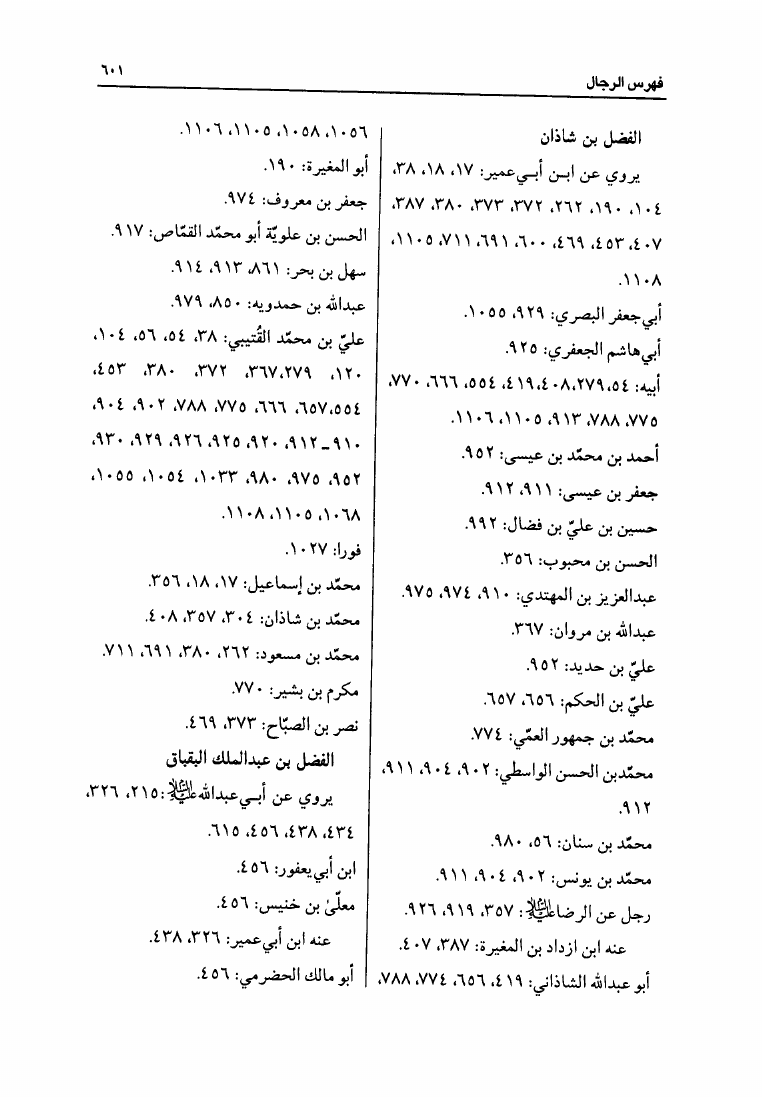 فهرس الرجال
٦٠١
الفضل بن شاذان
يروي عن ابـن أبـي‌عمير: ١٧، ١٨، ٣٨،
١٠٤، ١٩٠، ٢٦٢، ٣٧٢، ٣٧٣، ٣٨٠، ٣٨٧،
٤٠٧، ٤٥٣، ٤٦٩، ٦٠٠، ٦٩١، ٧١١، ١١٠٥،
١١٠٨.
أبي‌جعفر البصري: ٩٢٩، ١٠٥٥.
أبي‌هاشم الجعفري: ٩٢٥.
أبيه: ٥٤،٢٧٩،٤٠٨،٤١٩، ٥٥٤، ٦٦٦، ٧٧٠،
٧٧٥، ٧٨٨، ٩١٣، ١١٠٥، ١١٠٦.
أحمد بن محمّد بن عيسى: ٩٥٢.
جعفر بن عيسى: ٩١١، ٩١٢.
حسين بن عليّ بن فضال: ٩٩٢.
الحسن بن محبوب: ٣٥٦.
عبدالعزيز بن المهتدي: ٩١٠، ٩٧٤، ٩٧٥.
عبدالله بن مروان: ٣٦٧.
عليّ بن حديد: ٩٥٢.
عليّ بن الحكم: ٦٥٦، ٦٥٧.
محمّد بن جمهور العمّي: ٧٧٤.
محمّدبن الحسن الواسطي: ٩٠٢، ٩٠٤، ٩١١،
٩١٢.
محمّد بن سنان: ٥٦، ٩٨٠.
محمّد بن يونس: ٩٠٢، ٩٠٤، ٩١١.
رجل عن الرضا عليه‌السلام: ٣٥٧، ٩١٩، ٩٢٦.
عنه ابن ازداد بن المغيرة: ٣٨٧، ٤٠٧.
أبو عبدالله الشاذاني: ٤١٩، ٦٥٦، ٧٧٤، ٧٨٨،
١٠٥٦، ١٠٥٨، ١١٠٥، ١١٠٦.
أبو المغيرة: ١٩٠.
جعفر بن معروف: ٩٧٤.
الحسن بن علويّة أبو محمّد القمّاص: ٩١٧.
سهل بن بحر: ٨٦١، ٩١٣، ٩١٤.
عبدالله بن حمدويه: ٨٥٠، ٩٧٩.
عليّ بن محمّد القُتيبي: ٣٨، ٥٤، ٥٦، ١٠٤،
١٢٠، ٣٦٧،٢٧٩، ٣٧٢، ٣٨٠، ٤٥٣،
٦٥٧،٥٥٤، ٦٦٦، ٧٧٥، ٧٨٨، ٩٠٢، ٩٠٤،
٩١٠ـ٩١٢، ٩٢٠، ٩٢٥، ٩٢٦، ٩٢٩، ٩٣٠،
٩٥٢، ٩٧٥، ٩٨٠، ١٠٣٣، ١٠٥٤، ١٠٥٥،
١٠٦٨، ١١٠٥، ١١٠٨.
فورا: ١٠٢٧.
محمّد بن إسماعيل: ١٧، ١٨، ٣٥٦.
محمّد بن شاذان: ٣٠٤، ٣٥٧، ٤٠٨.
محمّد بن مسعود: ٢٦٢، ٣٨٠، ٦٩١، ٧١١.
مكرم بن بشير: ٧٧٠.
نصر بن الصبّاح: ٣٧٣، ٤٦٩.
الفضل بن عبدالملك البقباق
يروي عن أبـي‌عبدالله عليه‌السلام: ٢١٥، ٣٢٦،
٤٣٤، ٤٣٨، ٤٥٦، ٦١٥.
ابن أبي‌يعفور: ٤٥٦.
معلّىٰ بن خنيس: ٤٥٦.
عنه ابن أبي‌عمير: ٣٢٦، ٤٣٨.
أبو مالك الحضرمي: ٤٥٦.